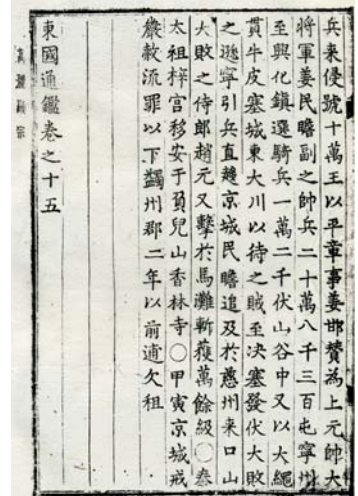 兵来侵號十萬王以平章事姜邯賛為上元帥大
將軍姜民瞻副之帥兵二十萬八千三百屯寧州
至興化鎮選騎兵一萬二千伏山谷中又以大繩
貫牛皮塞城東大川以待之賊至决塞發伏大敗
之遜寧引兵直趨京城民瞻追及於慈州来口山
大敗之侍郎趙元又擊於馬灘斬獲萬餘級○奉
太祖梓宫移安于負兒山香林寺○甲寅京城戒
嚴赦流罪以下蠲州郡二年以前逋欠租
東國通鑑卷之十五
高麗顯宗